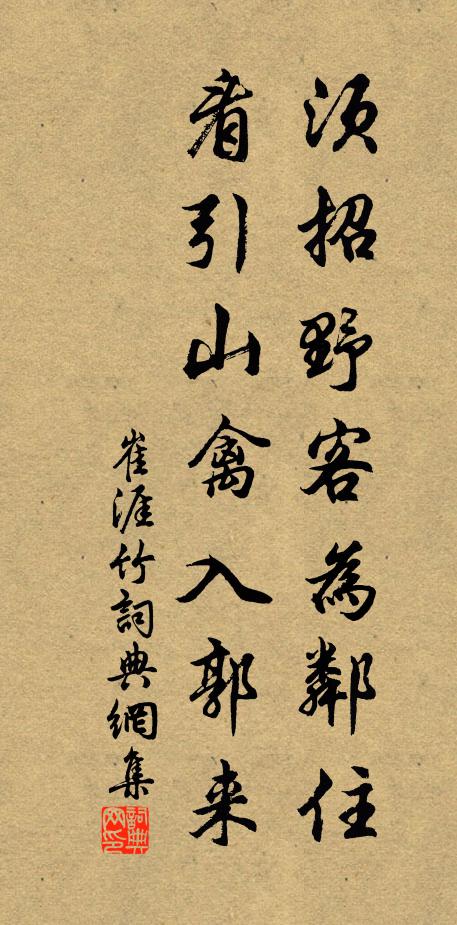 須招野客為鄰住
看引山禽入郭来
崔涯竹詞典網集
詞典網印